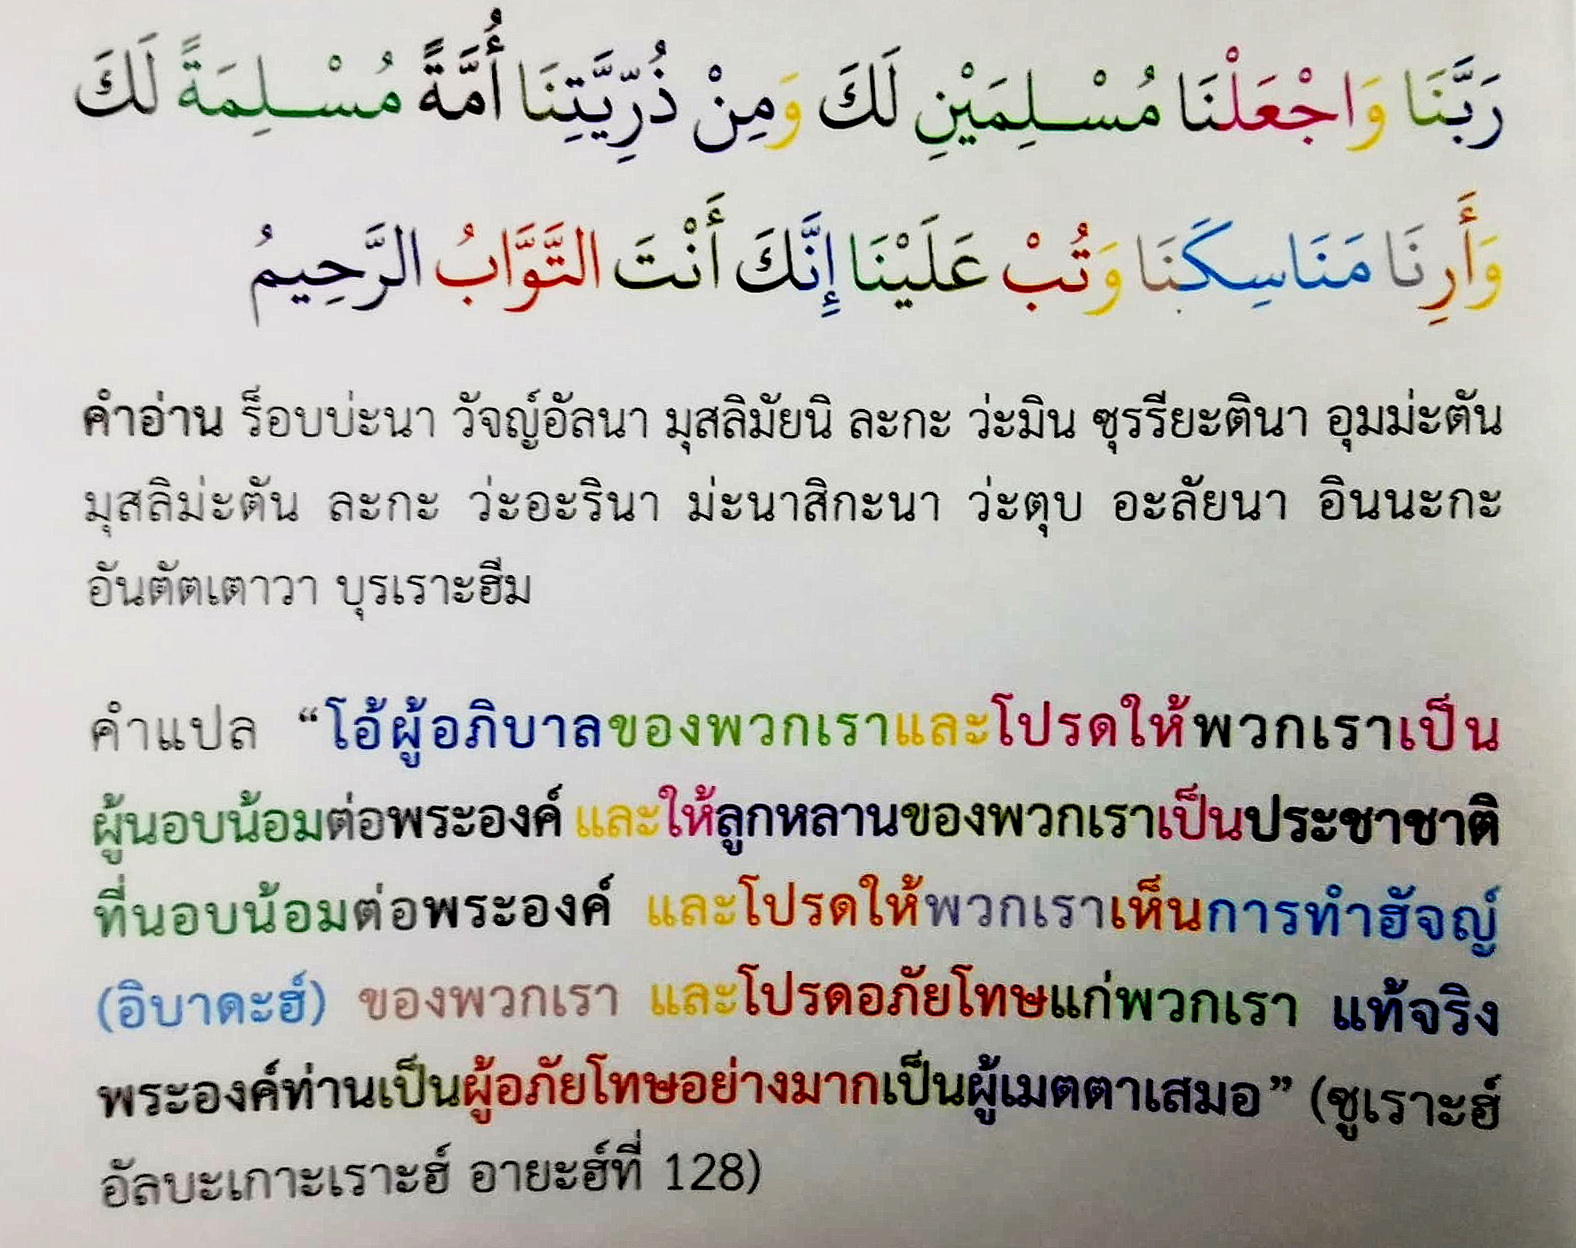 رَبَّنَا وَاجْعَلْنَا مُسْلِمَيْنِ لَكَ وَمِنْ ذُرِّيَّتِنَا أُمَّةً مُسْلِمَةً لَكَ
وَأَرِنَا مَنَاسِكَنَا وَتُبْ عَلَيْنَا إِنَّكَ أَنْتَ التَّوَّابُ الرَّحِيمُ
คำอ่าน ร็อบบ่ะนา วัจญ์อัลนา มุสลิมัยนิ ละกะ ว่ะมิน ซุรรียะตินา อุมม่ะตัน
มุสลิม่ะตัน ละกะ ว่ะอะรินา ม่ะนาสิกะนา ว่ะตุบ อะลัยนา อินนะกะ
อันตัตเตาวา บุรเราะฮีม
คำแปล “โอ้ผู้อภิบาลของพวกเราและโปรดให้พวกเราเป็น
ผู้นอบน้อมต่อพระองค์ และให้ลูกหลานของพวกเราเป็นประชาชาติ
ที่นอบน้อมต่อพระองค์ และโปรดให้พวกเราเห็นการทำฮัจญ์
(อิบาดะฮ์) ของพวกเรา และโปรดอภัยโทษแก่พวกเรา แท้จริง
พระองค์ท่านเป็นผู้อภัยโทษอย่างมากเป็นผู้เมตตาเสมอ” (ซูเราะฮ์
อัลบะเกาะเราะฮ์ อายะฮ์ที่ 128)